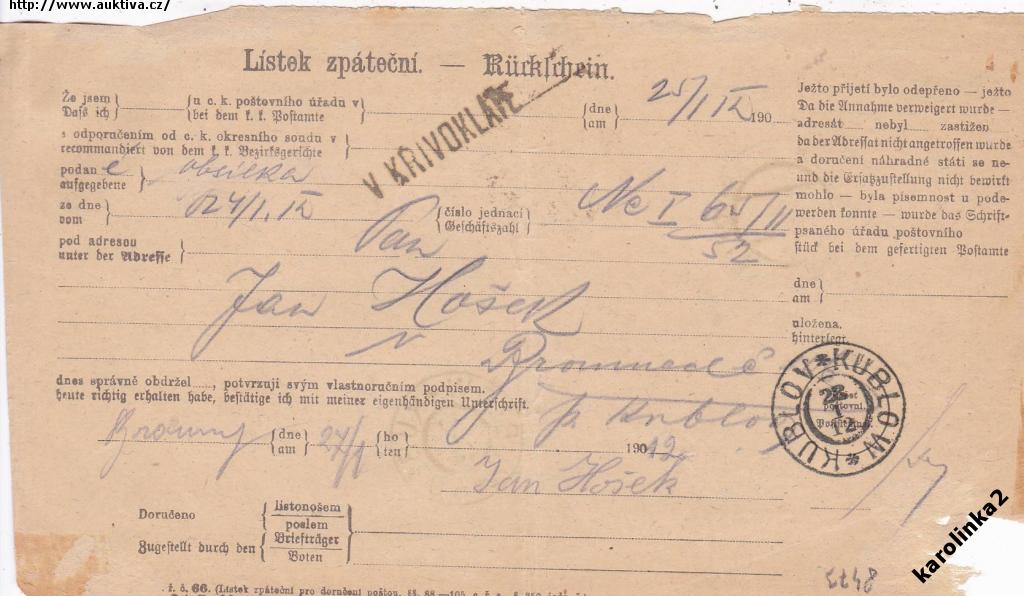 http://www.auktiva.cz/
Lístek zpáteční. — Rückschein.
Že jsem u c. k. poštovního úřadu v dne 25/I 12 190
Daß ich bei dem k. k. Postamte am
V KŘIVOKLÁTĚ
s odporučením od c. k. okresního soudu v
recommandiert von dem k. k. Bezirksgerichte
podan é obsilka
aufgegebene
ze dne 24/1. 12 číslo jednací Nc I 65/11
vom Geschäftszahl 52
pod adresou Pan
unter der Adresse
Jan Hošek
v
p. Kublov
dnes správně obdržel ....., potvrzuji svým vlastnoručním podpisem.
heute richtig erhalten habe, bestätige ich mit meiner eigenhändigen Unterschrift.
dne 27/1 ho 190 12
am ten
Jan Hošek
Doručeno listonošem
poslem
Zugestellt durch den Briefträger
Boten
ř. č. 66. (Lístek zpáteční pro doručení poštou,
Ježto přijetí bylo odepřeno — ježto
Da die Annahme verweigert wurde —
adresát nebyl zastižen
da der Adressat nicht angetroffen wurde
a doručení náhradné státi se ne-
und die Ersatzzustellung nicht bewirkt
mohlo — byla písemnost u pode-
werden konnte — wurde das Schrift-
psaného úřadu poštovního
stück bei dem gefertigten Postamte
dne
am
uložena.
hinterlegt.
KUBLOV * KUBLOW *
karolinka2